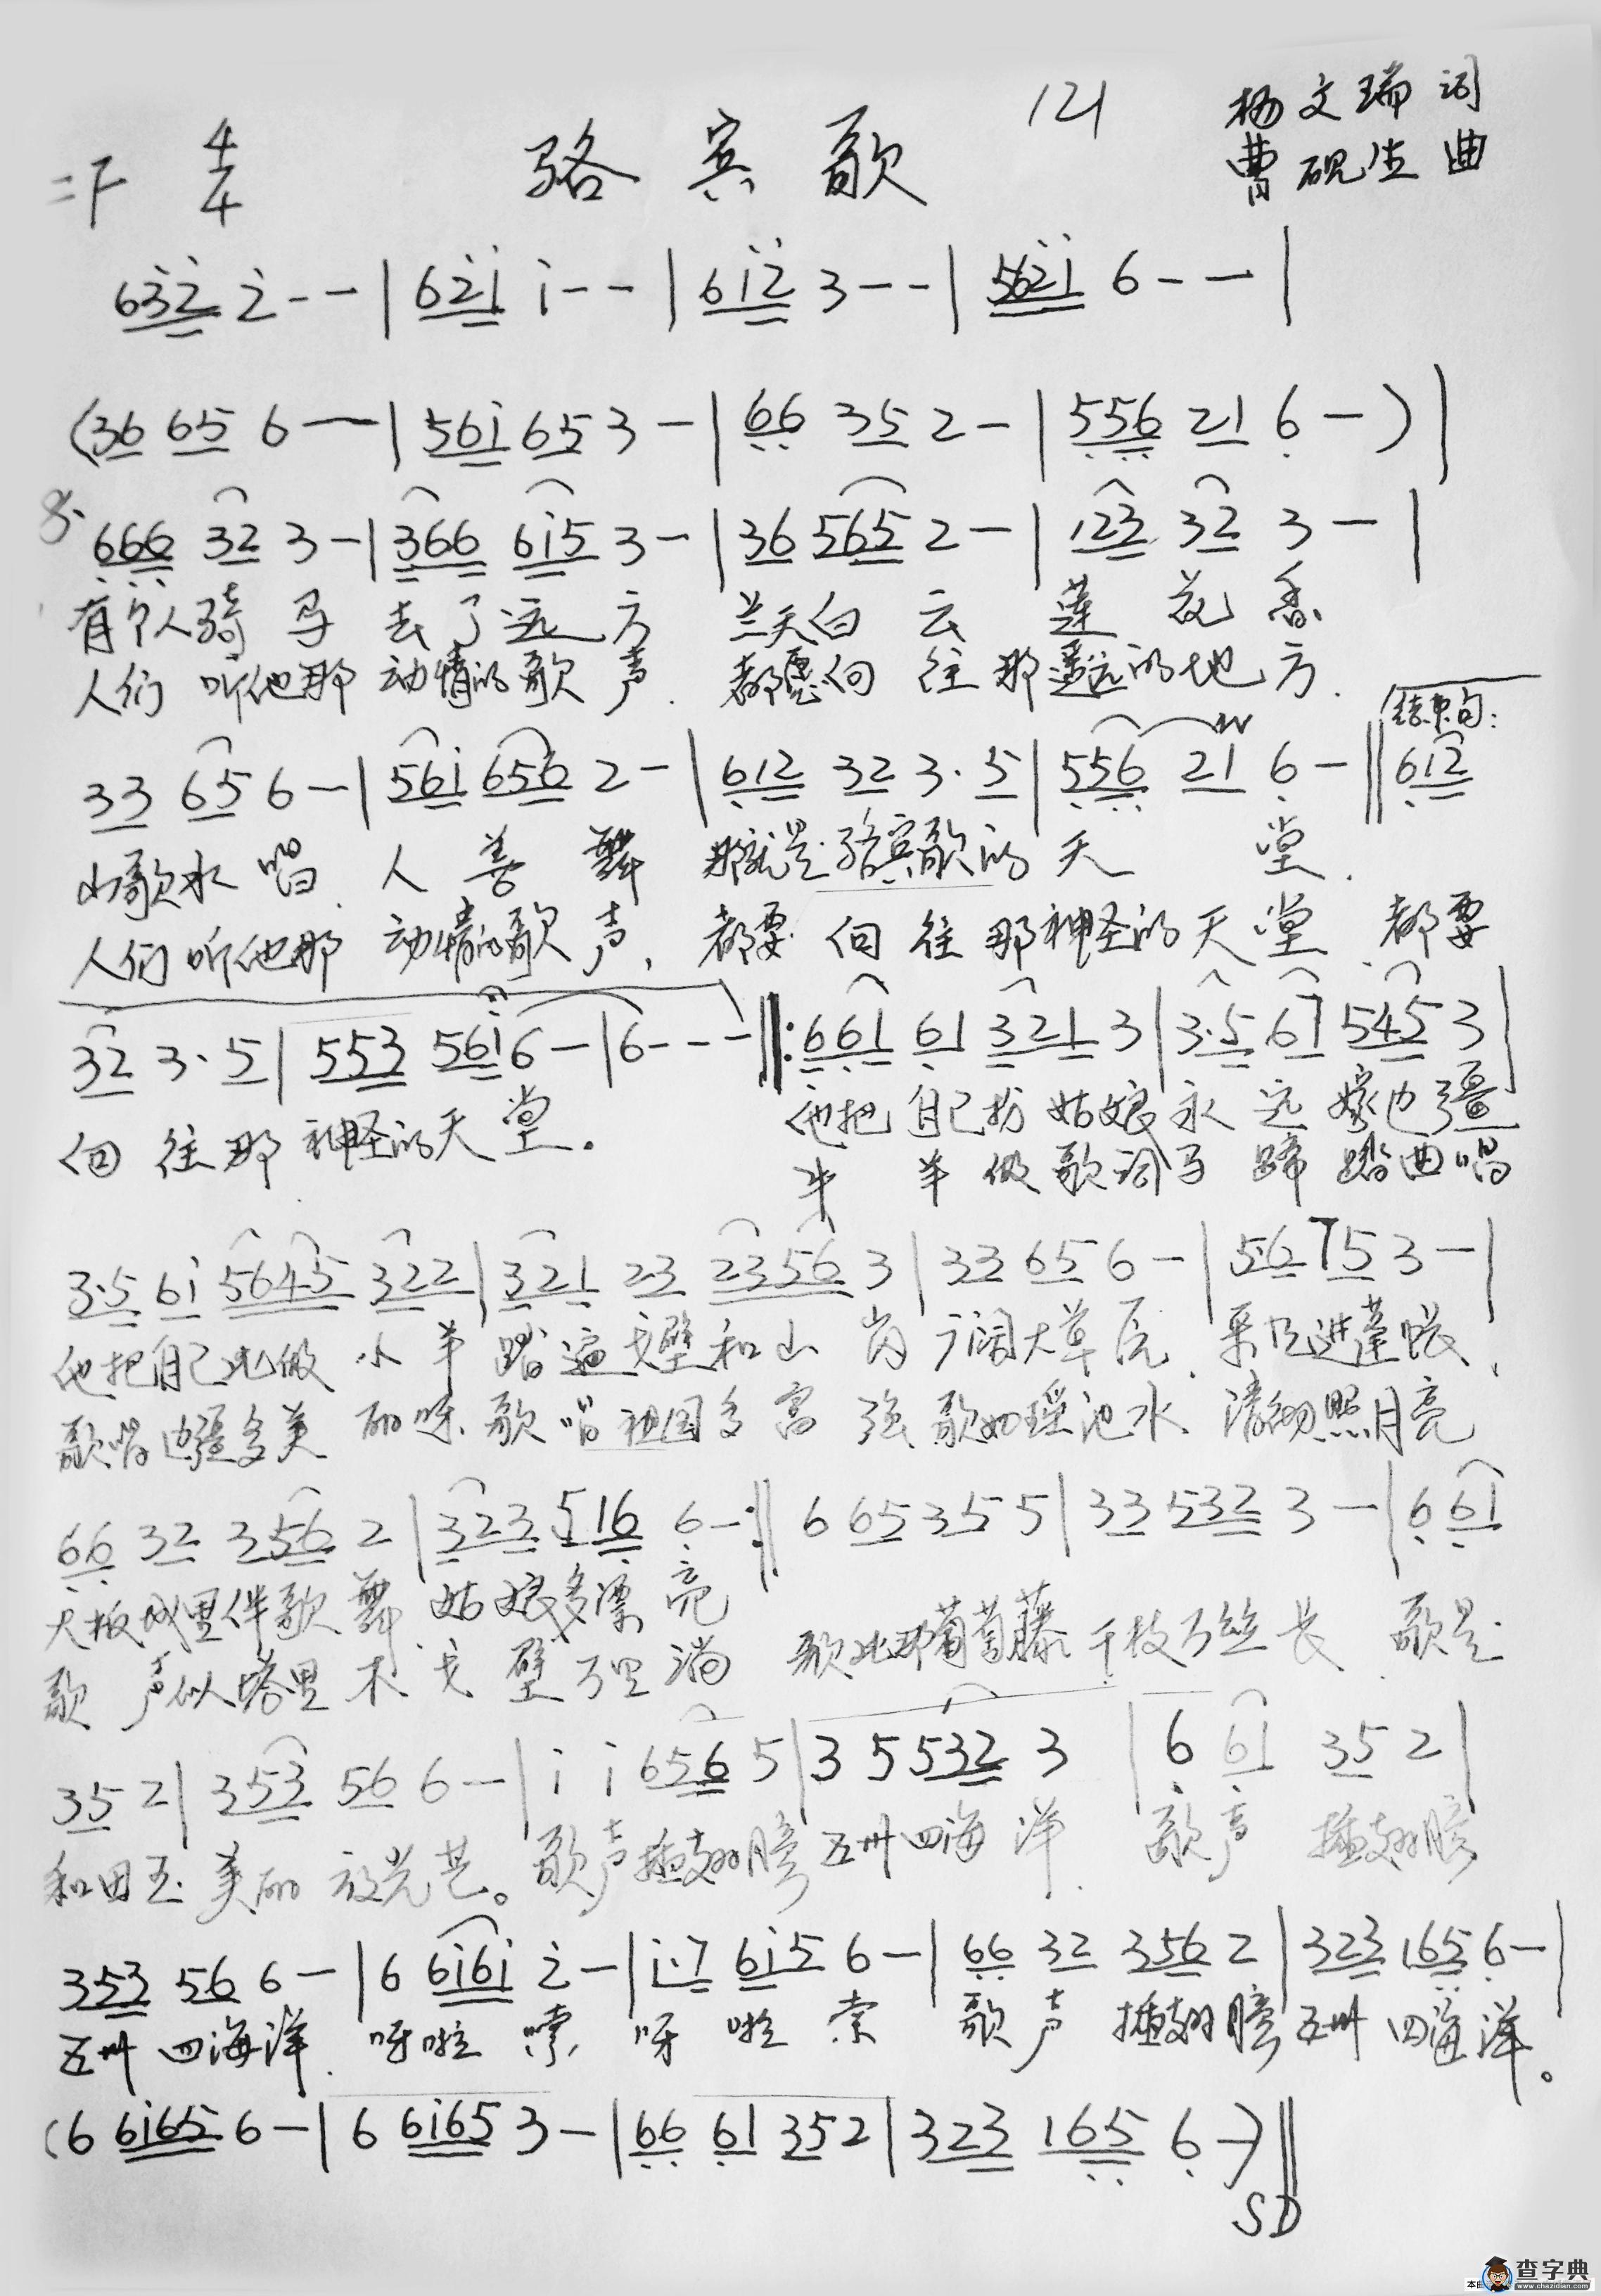 121
杨文瑞 词
=F 4/4 骆宾歌
曹砚生 曲
632 2 - - | 621 1 - - | 612 3 - - | 5621 6 - - |
(36 65 6 - | 561 65 3 - | 66 35 2 - | 556 21 6 - ) |
666 32 3 - | 366 615 3 - | 36 565 2 - | 123 32 3 - |
有个人骑马去了远方 兰天白云莲花香
人们听他那动情的歌声. 都愿向往那遥远的地方.
结束句:
33 65 6 - | 561 656 2 - | 612 32 3· 5 | 556 21 6 - || 612
山歌水唱.人善舞 那就是骆宾歌的天堂.
人们听他那动情的歌声, 都要向往那神圣的天堂 都要
32 3· 5 | 553 561 6 - | 6 - - - ||: 661 61 321 3 | 3·5 67 545 3 |
向往那神圣的天堂. 他把自己扮姑娘永远嫁边疆
牛羊做歌词马蹄踏曲唱
3·5 61 5645 322 | 321 23 2356 3 | 33 65 6 - | 56 75 3 - |
他把自己比做小羊踏遍戈壁和山岗广阔大草原.来煨进蓬帐,
歌唱边疆多美丽呀歌唱祖国多富强歌如瑶池水 清彻照月亮
66 32 356 2 | 323 516 6 - :|| 6 65 35 5 | 33 532 3 - | 6 61
大板城里伴歌舞 姑娘多漂亮
歌声似塔里木戈壁万里淌 歌比那葡萄藤千枝万丝长 歌是
35 2 | 353 56 6 - | 1 1 656 5 | 3 5 532 3 | 6 61 35 2 |
和田玉美丽放光芒。歌声插翅膀五州四海洋. 歌声插翅膀
353 56 6 - | 6 6161 2 - | 1·7 615 6 - | 66 32 356 2 | 323 165 6 - |
五州四海洋. 呀啦嗦, 呀啦索 歌声插翅膀五州四海洋。
(6 6165 6 - | 6 6165 3 - | 66 61 35 2 | 323 165 6 - ) ||
SD
查字典
www.chazidian.com